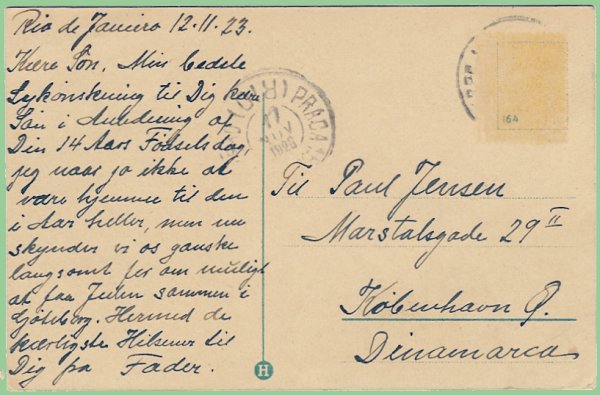 Rio de Janeiro 12.11.23.
Kære Søn, Min bedste
Lykønskning til Dig kære
Søn i Anledning af
Din 14 Aars Födselsdag,
jeg naar jo ikke at
være hjemme til den
i Aar heller, men nu
skynder vi os ganske
langsomt for om muligt
at faa Julen sammen i
Göteborg. Hermed de
kærligste Hilsener til
Dig fra Fader.
(RIO) PRAÇA
17
NOV
164
Til Paul Jensen
Marstalsgade 29 II
København Ø.
Dinamarca
H